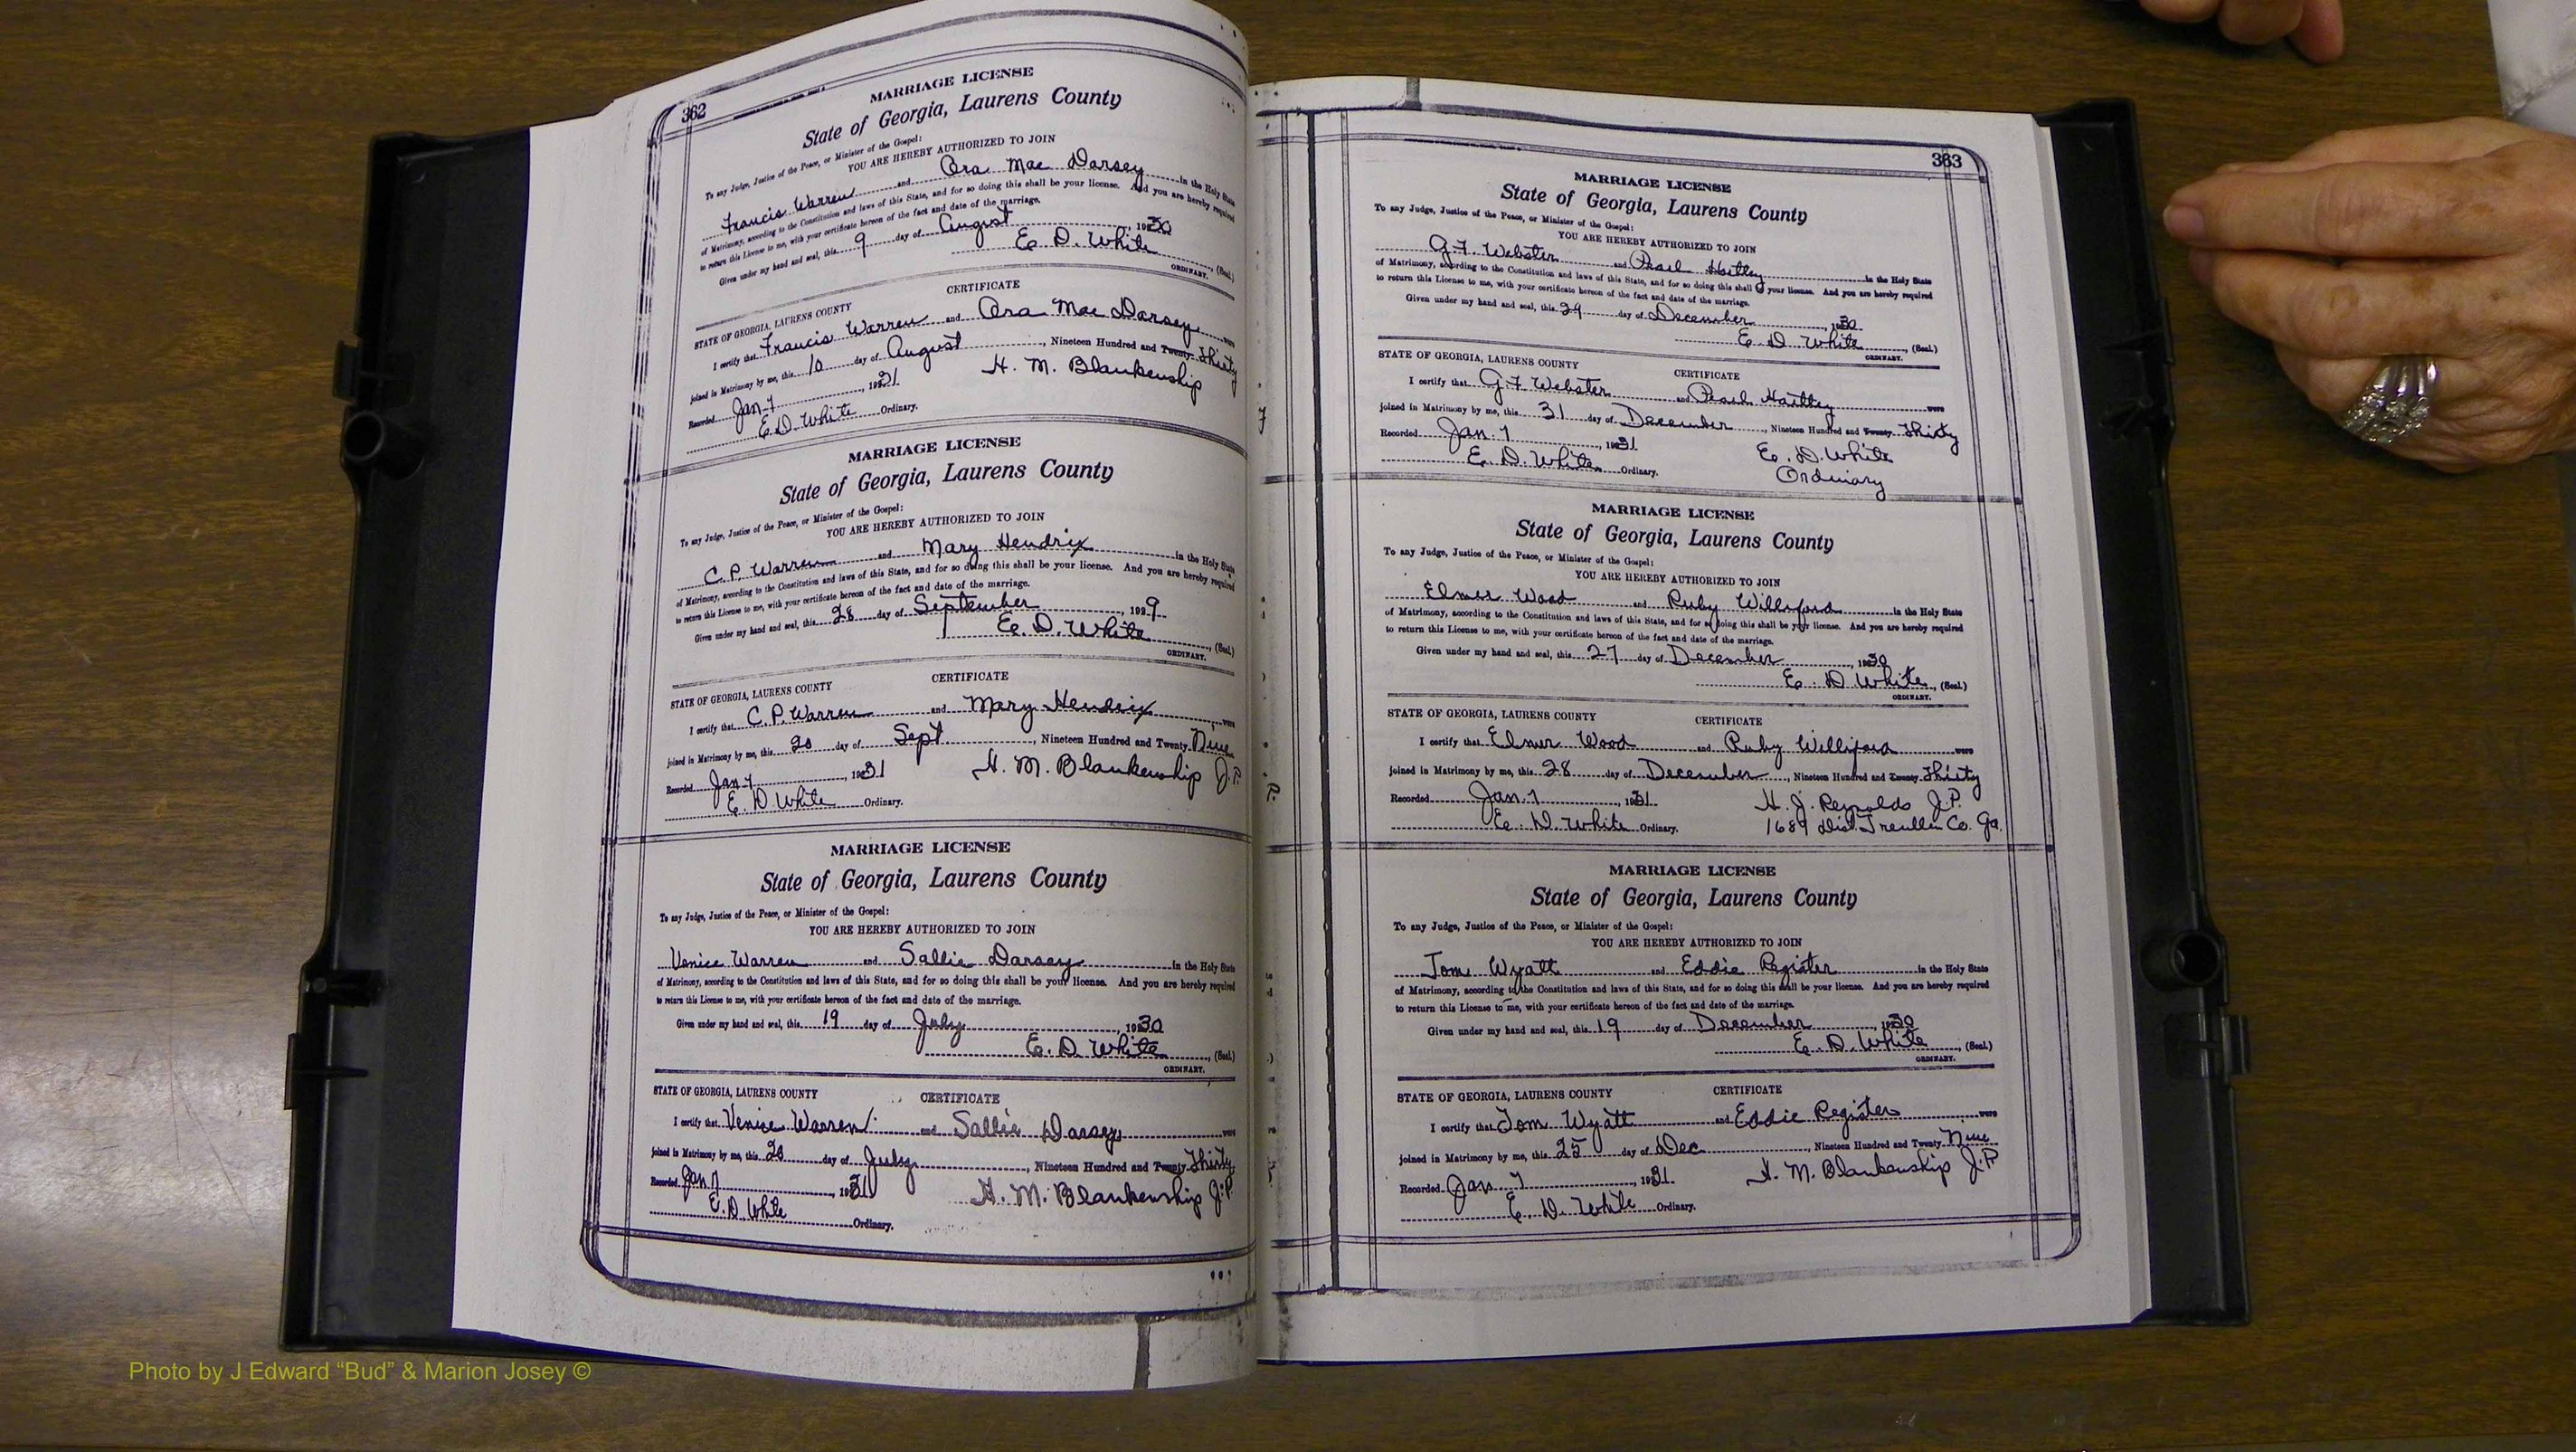 362
MARRIAGE LICENSE
State of Georgia, Laurens County
To any Judge, Justice of the Peace, or Minister of the Gospel:
YOU ARE HEREBY AUTHORIZED TO JOIN
Francis Warren and Ora Mae Darsey in the Holy State
of Matrimony, according to the Constitution and laws of this State, and for so doing this shall be your license. And you are hereby required
to return this License to me, with your certificate hereon of the fact and date of the marriage.
Given under my hand and seal, this 9 day of August 1930
E. D. White (Seal.)
ORDINARY.
CERTIFICATE
STATE OF GEORGIA, LAURENS COUNTY
I certify that Francis Warren and Ora Mae Darsey were
joined in Matrimony by me, this 10 day of August, Nineteen Hundred and Twenty Thirty
Recorded Jan 7, 1931 H. M. Blankenship
E. D. White Ordinary.
MARRIAGE LICENSE
State of Georgia, Laurens County
To any Judge, Justice of the Peace, or Minister of the Gospel:
YOU ARE HEREBY AUTHORIZED TO JOIN
C. P. Warren and Mary Hendrix in the Holy State
of Matrimony, according to the Constitution and laws of this State, and for so doing this shall be your license. And you are hereby required
to return this License to me, with your certificate hereon of the fact and date of the marriage.
Given under my hand and seal, this 28 day of September, 1929
E. D. White (Seal.)
ORDINARY.
CERTIFICATE
STATE OF GEORGIA, LAURENS COUNTY
I certify that C. P. Warren and Mary Hendrix were
joined in Matrimony by me, this day of Sept, Nineteen Hundred and Twenty Nine
Recorded Jan 7, 1931 H. M. Blankenship J.P.
E. D. White Ordinary.
MARRIAGE LICENSE
State of Georgia, Laurens County
To any Judge, Justice of the Peace, or Minister of the Gospel:
YOU ARE HEREBY AUTHORIZED TO JOIN
Venice Warren and Sallie Darsey in the Holy State
of Matrimony, according to the Constitution and laws of this State, and for so doing this shall be your license. And you are hereby required
to return this License to me, with your certificate hereon of the fact and date of the marriage.
Given under my hand and seal, this 19 day of July, 1930
E. D. White, (Seal.)
ORDINARY.
STATE OF GEORGIA, LAURENS COUNTY CERTIFICATE
I certify that Venice Warren and Sallie Darsey were
joined in Matrimony by me, this 20 day of July, Nineteen Hundred and Twenty Thirty
Recorded Jan 7, 1931 H. M. Blankenship J.P.
E. D. White Ordinary.
363
MARRIAGE LICENSE
State of Georgia, Laurens County
To any Judge, Justice of the Peace, or Minister of the Gospel:
YOU ARE HEREBY AUTHORIZED TO JOIN
G. F. Webster and Pearl Hattley in the Holy State
of Matrimony, according to the Constitution and laws of this State, and for so doing this shall be your license. And you are hereby required
to return this License to me, with your certificate hereon of the fact and date of the marriage.
Given under my hand and seal, this 29 day of December, 1930
E. D. White, (Seal.)
ORDINARY.
STATE OF GEORGIA, LAURENS COUNTY CERTIFICATE
I certify that G. F. Webster and Pearl Hattley were
joined in Matrimony by me, this 31 day of December, Nineteen Hundred and Twenty Thirty
Recorded Jan. 7, 1931 E. D. White
E. D. White Ordinary. Ordinary
MARRIAGE LICENSE
State of Georgia, Laurens County
To any Judge, Justice of the Peace, or Minister of the Gospel:
YOU ARE HEREBY AUTHORIZED TO JOIN
Elmer Wood and Ruby Williford in the Holy State
of Matrimony, according to the Constitution and laws of this State, and for so doing this shall be your license. And you are hereby required
to return this License to me, with your certificate hereon of the fact and date of the marriage.
Given under my hand and seal, this 27 day of December, 1930
E. D White, (Seal.)
ORDINARY.
STATE OF GEORGIA, LAURENS COUNTY CERTIFICATE
I certify that Elmer Wood and Ruby Williford were
joined in Matrimony by me, this 28 day of December, Nineteen Hundred and Twenty Thirty
Recorded Jan. 7, 1931. H. J. Reynolds J.P.
E. D. White Ordinary. 1689 Dist. Treutlen Co. Ga.
MARRIAGE LICENSE
State of Georgia, Laurens County
To any Judge, Justice of the Peace, or Minister of the Gospel:
YOU ARE HEREBY AUTHORIZED TO JOIN
Tom Wyatt and Eddie Register in the Holy State
of Matrimony, according to the Constitution and laws of this State, and for so doing this shall be your license. And you are hereby required
to return this License to me, with your certificate hereon of the fact and date of the marriage.
Given under my hand and seal, this 19 day of December, 1930
E. D. White, (Seal.)
ORDINARY.
STATE OF GEORGIA, LAURENS COUNTY CERTIFICATE
I certify that Tom Wyatt and Eddie Register were
joined in Matrimony by me, this 25 day of Dec, Nineteen Hundred and Twenty Nine
Recorded Jan 7, 1931. H. M. Blankenship J.P.
E. D. White Ordinary.
Photo by J Edward “Bud” & Marion Josey ©